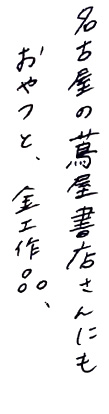 名古屋の蔦屋書店さんにも
おやつと、金工作品、